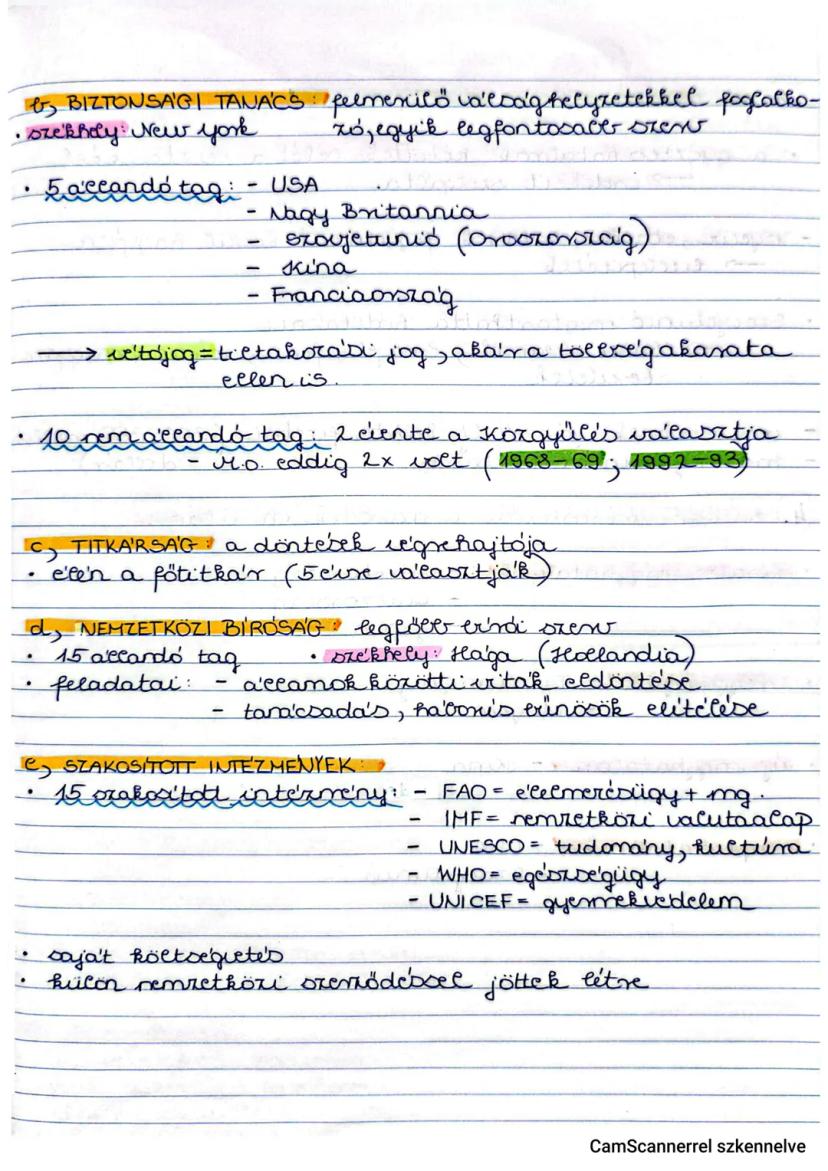 b, BIZTONSÁGI TANÁCS: felmerülő válsághelyzetekkel foglalko-
• székhely: New york zó, egyik legfontosabb szerv
• 5 állandó tag: - USA
- Nagy Britannia
- Szovjetunió (Oroszország)
- Kína
- Franciaország
→ vétójog = tiltakozási jog, akár a többség akarata
ellen is.
• 10 nem állandó tag: 2 évente a Közgyűlés választja
- M.o. eddig 2x volt (1968-69; 1992-93)
c, TITKÁRSÁG: a döntések végrehajtója
• élén a főtitkár (5 évre választják)
d, NEMZETKÖZI BÍRÓSÁG: legfőbb bírói szerv
• 15 állandó tag • székhely: Hága (Hollandia)
• feladatai: - államok közötti viták eldöntése
- tanácsadás, háborús bűnösök elítélése
e, SZAKOSÍTOTT INTÉZMÉNYEK:
• 15 szakosított intézmény: - FAO = élelmezésügy + mg.
- IMF = nemzetközi valutaalap
- UNESCO = tudomány, kultúra
- WHO = egészségügy
- UNICEF = gyermekvédelem
• saját költségvetés
• külön nemzetközi szerződéssel jöttek létre
CamScannerrel szkennelve